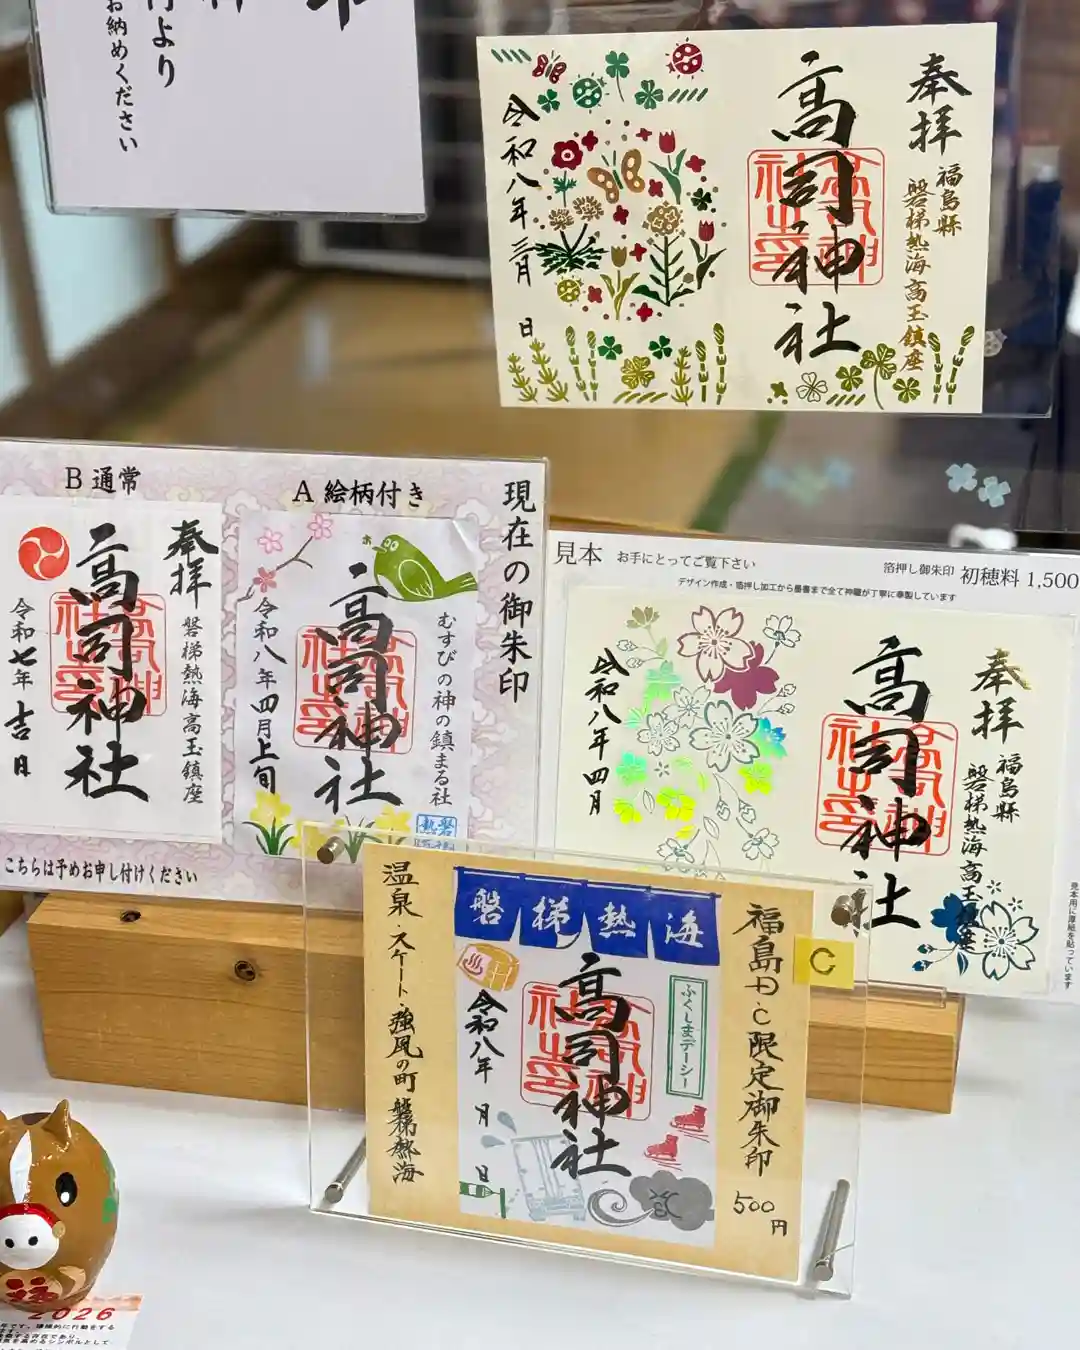 より
お納めください
奉拝
福島縣
磐梯熱海高玉鎮座
高司神社
令和八年三月
日
現在の御朱印
A 絵柄付き
むすびの神の鎮まる社
高司神社
令和八年四月上旬
B 通常
奉拝
磐梯熱海高玉鎮座
高司神社
令和七年吉日
こちらは予めお申し付けください
見本 お手にとってご覧下さい
箔押し御朱印 初穂料 1,500
デザイン作成・箔押し加工から墨書まで全て神職が丁寧に奉製しています
奉拝
福島縣
磐梯熱海高玉鎮座
高司神社
令和八年四月
見本用に厚紙を貼っています
C
福島DC限定御朱印
500円
磐梯熱海
ふくしまデーシー
高司神社
令和八年 月 日
温泉・スケート・強風の町 磐梯熱海
福
2026